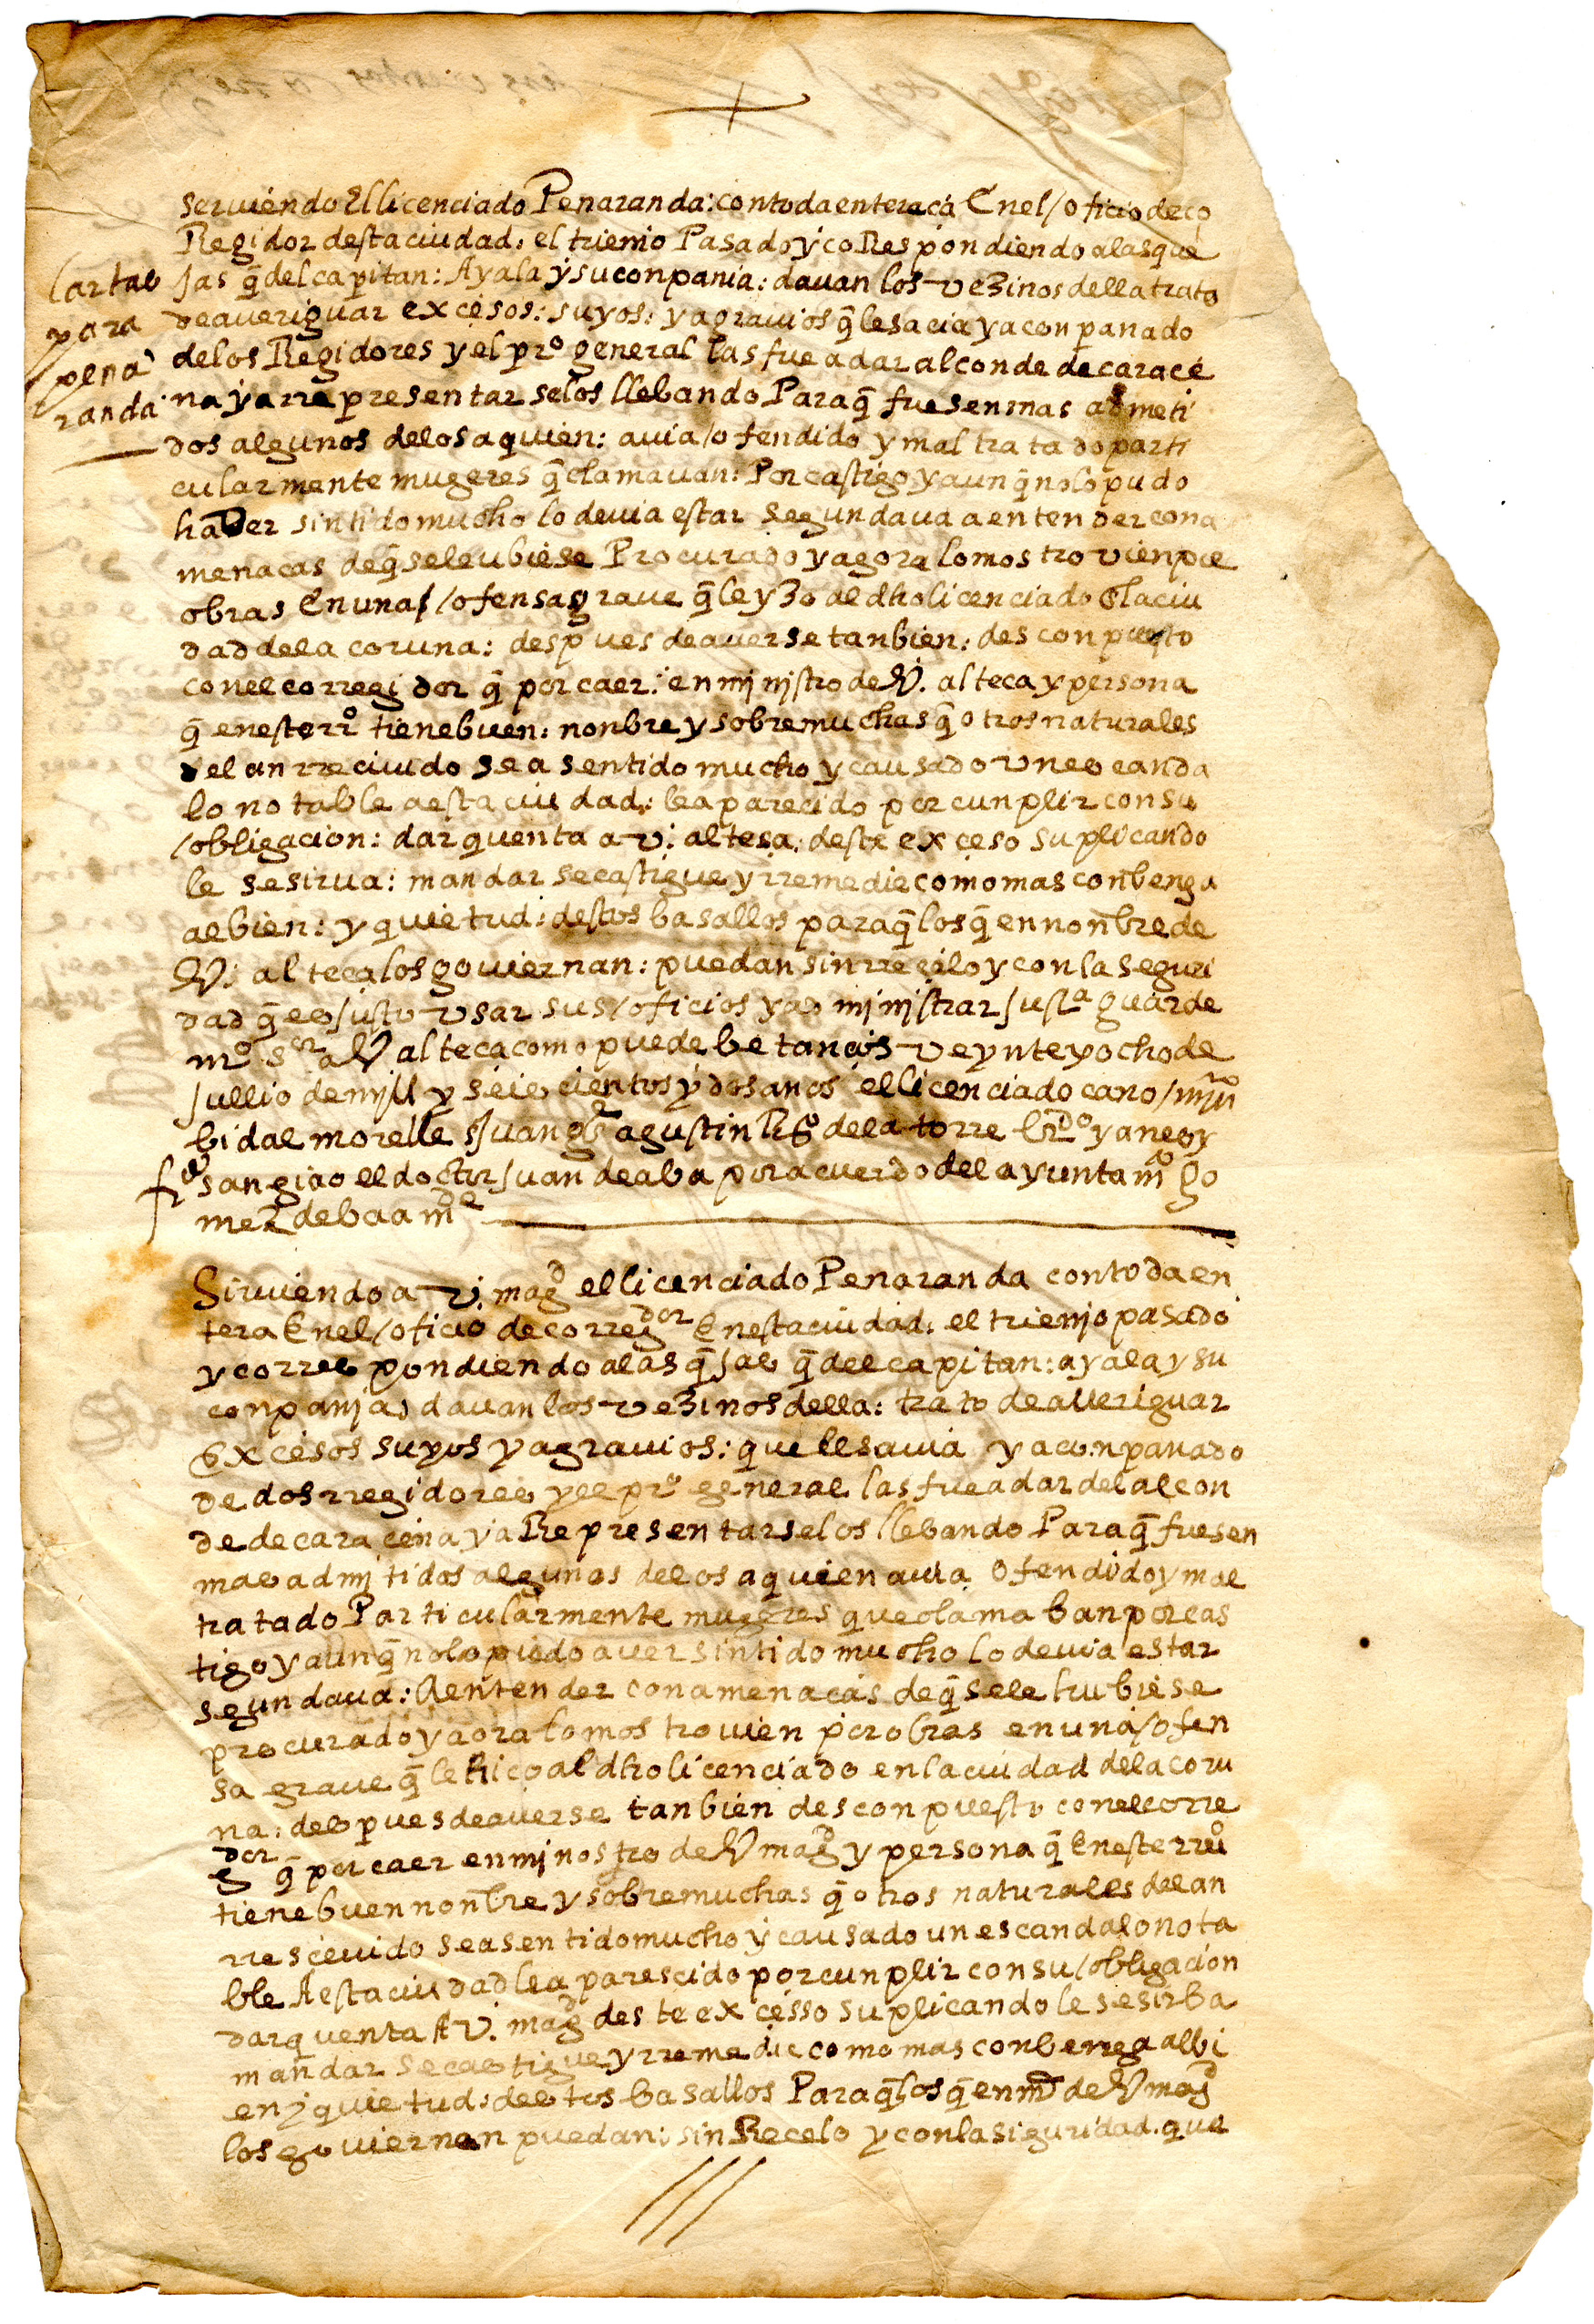 serviendo El licenciado Penaranda: con toda enteraça Enel /oficio de co
Regidor desta ciudad: el trienio Pasado y coRespondiendo alas que
Jas q̃ del capitan: Ayala y su conpania: davan los vezinos della trato
de averiguar excesos: suyos: y agravios q̃ les acia y aconpanado
de los Regidores y el pro general las fue a dar al conde de carace
na y a rrepresentar selos llebando Para q̃ fuesen mas admeti
dos algunos delos a quien: avia /ofendido y maltratado parti
cularmente mugeres q̃ clamavan: Por castigo y aun q̃ no lo pudo
haber sintido mucho lo devia estar segun dava a entender con a
menaças de q̃ se le ubiese Procurado y agora lo mostro vien por
obras En una /ofensa grave q̃ le yzo al dho licenciado En la ciu
dad de la coruna: despues de averse tanbien: desconpuesto
con el corregidor q̃ por caer: en ministro de V. alteça y persona
q̃ en este rro tiene buen: nonbre y sobre muchas q̃ otros naturales
del an rrecivido se a sentido mucho y causado un escanda
lo notable a esta ciudad: le a parecido por cunplir con su
/obligacion: dar quenta a v: altesa: deste exceso suplicando
le se sirva: mandar se castigue y rremedie como mas conbenga
al bien: y quietud: destos basallos para q̃ los q̃ en nonbre de
V: alteça los goviernan: puedan sin rreçelo y con la seguri
dad q̃ es Justo usar sus /oficios y administrar Justa guarde
nro sor a V alteça como puede betanços veynte y ocho de
Jullio de mill y seiscientos y dos anos el licenciado cano /
bidal morelle Juan agustin de la torre yanes y
sangiao el doctor Juan de aba por acuerdo del ayuntamo go
mez de baamde
Cartas
para
pena
randa
Sirviendo a v. magd el licenciado Penaranda con toda en
tera Enel /oficio de corregdor En esta ciudad: el trienio pasado
y correspondiendo a las q̃Jas q̃ del capitan: ayala y su
conpania, davan los vezinos della: trato de averiguar
Excesos suyos y agravios: que les avia y aconpanado
de dos rregidores y el pro general las fue a dar del al con
de de caracena y a Representarselos llebando Para q̃ fuesen
mas admitidos algunos delos a quien avia Ofendido y mal
tratado Particularmente mugeres que clamaban por cas
tigo y aun q̃ no lo pudo aver sintido mucho lo devia estar
segun dava: A entender con amenaças de q̃ se le hubiese
procurado y aora lo mostro vien por obras en una /ofen
sa grave q̃ le hiço al dho licenciado en la ciudad de la coru
na: despues de averse tanbien desconpuesto con el corre
gdor q̃ por caer en ministro de V magd y persona q̃ En este rro
tiene buen nonbre y sobre muchas q̃ otros naturales del an
rresçevido se a sentido mucho y causado un escandalo nota
ble A esta ciudad le a parescido por cunplir con su /obligacion
dar quenta A v. magd deste excesso suplicandole se sirba
mandar se castigue y rremedie como mas conbenga al bi
en y quietud: destos basallos Para q̃ los q̃ en nre de V magd
los goviernan puedan: sin Recelo y con la siguridad. que